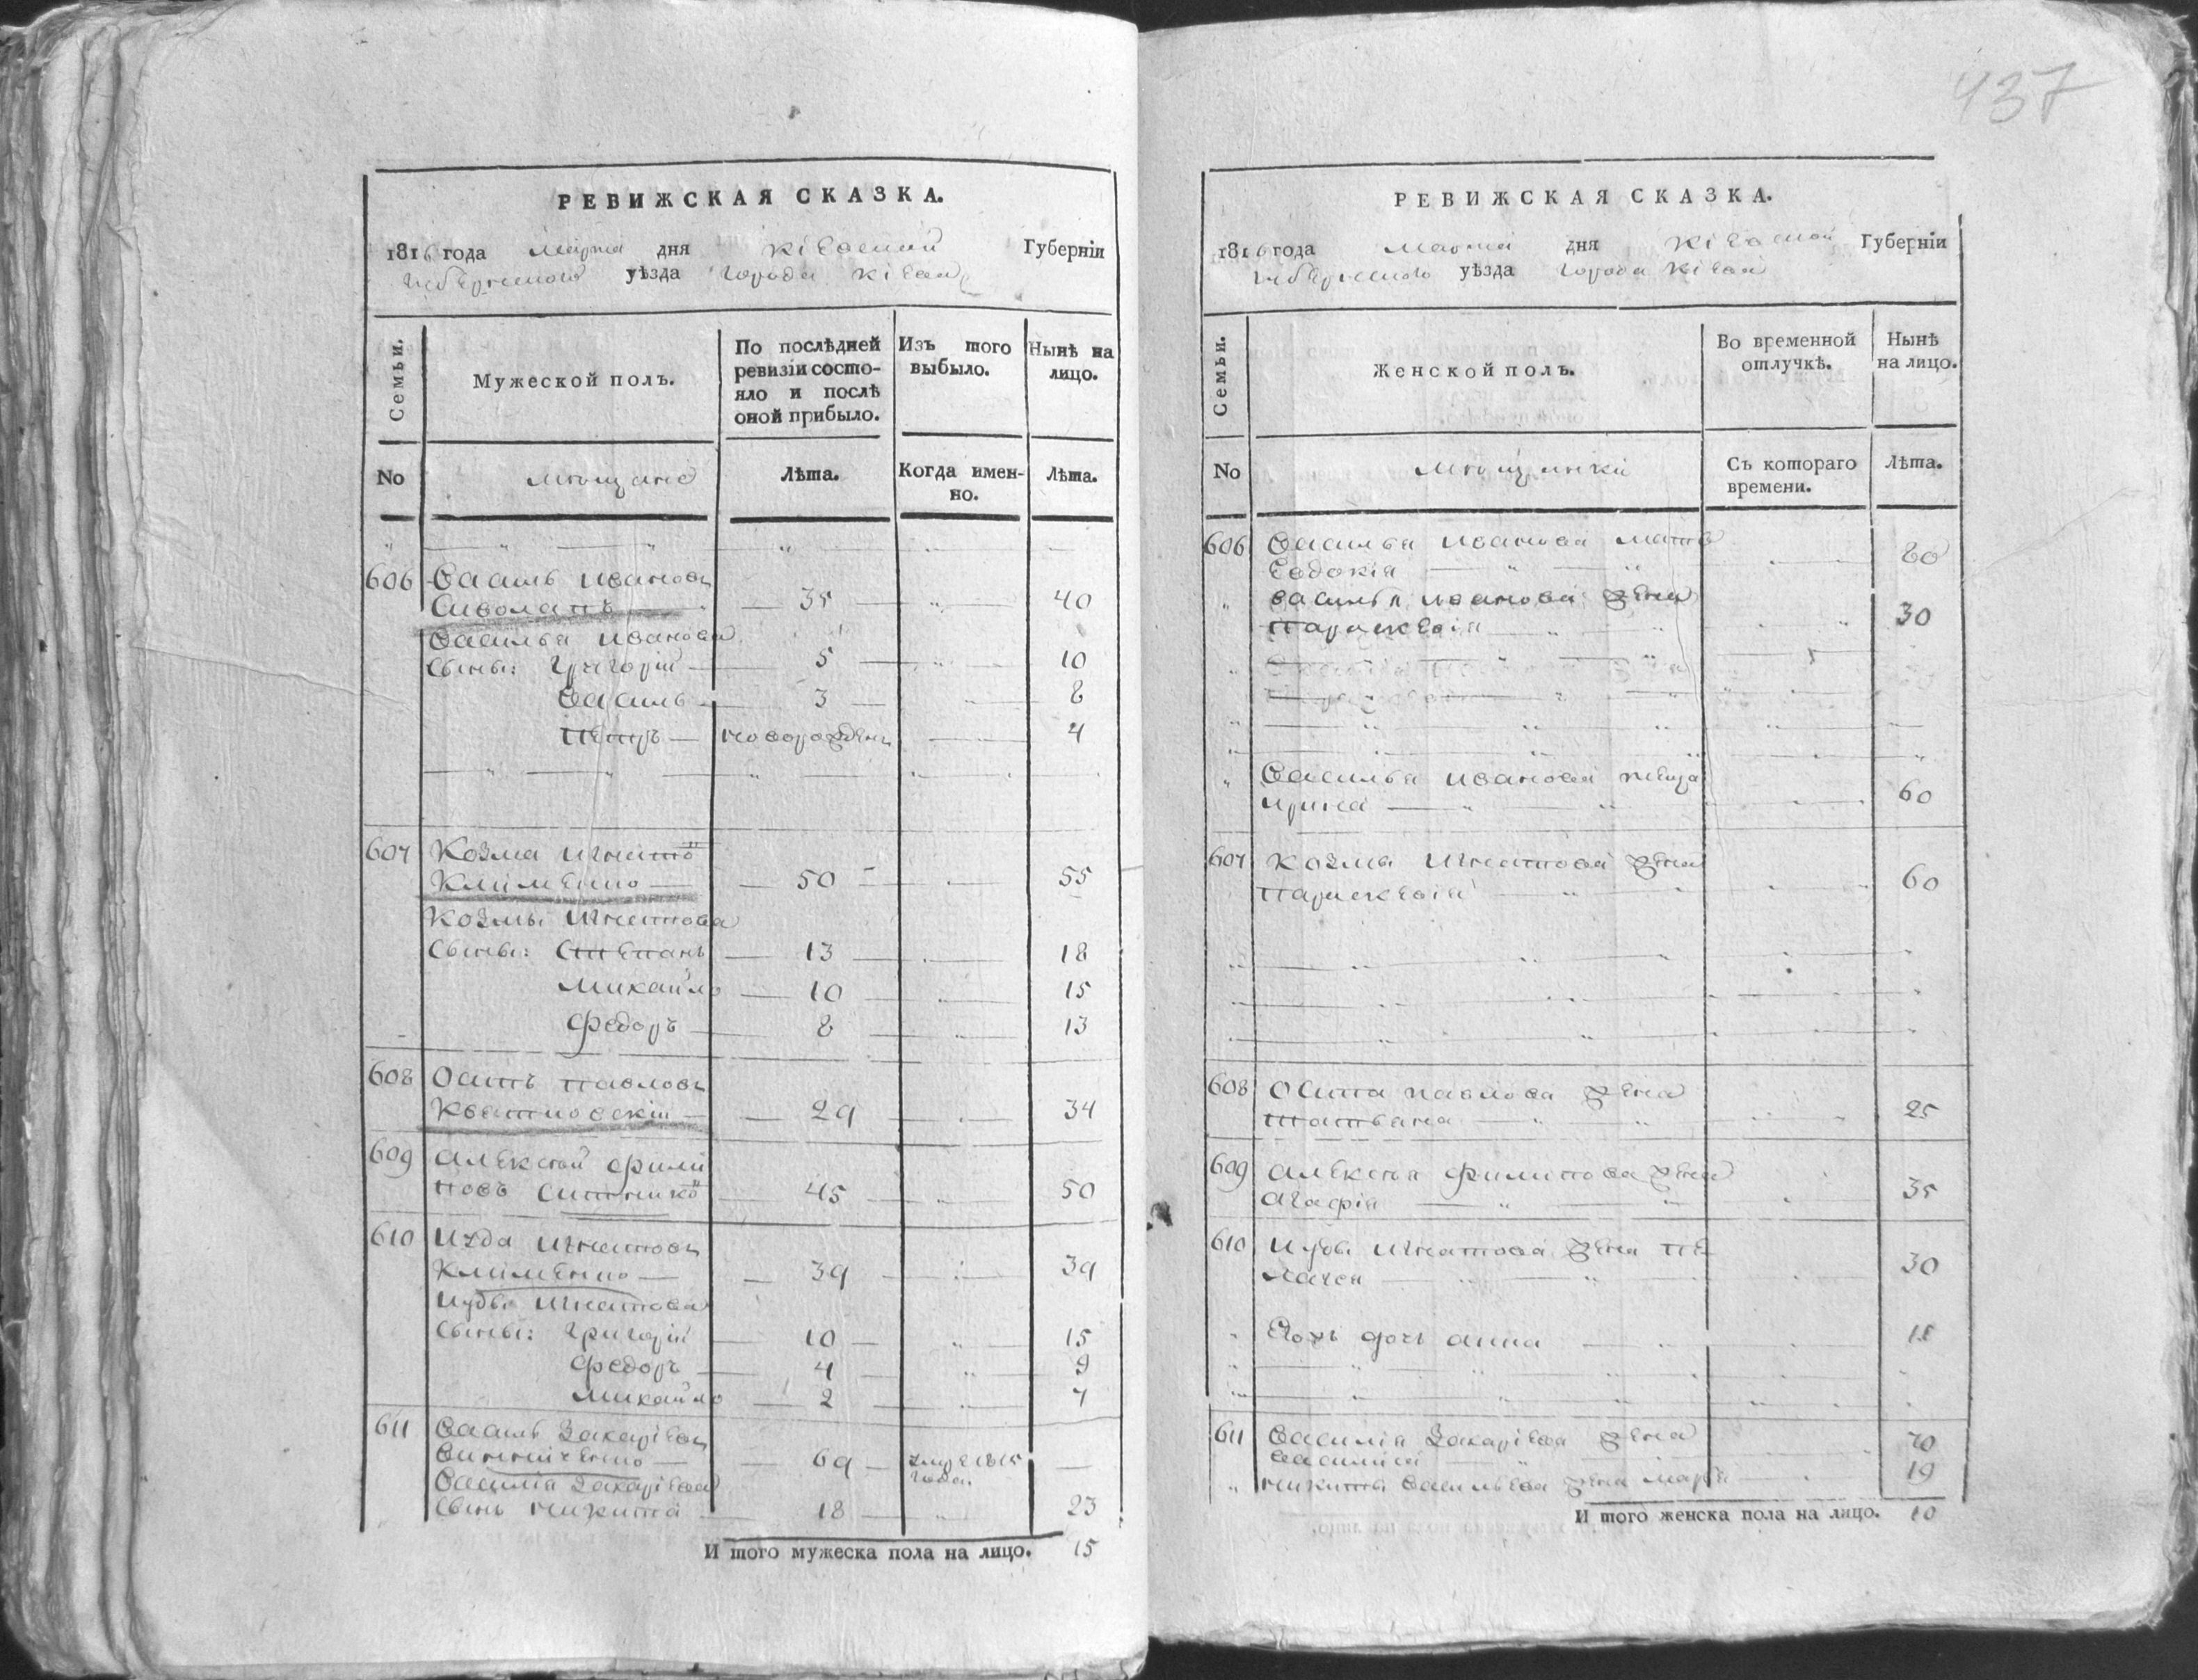 437
РЕВИЖСКАЯ СКАЗКА.
1816 года Марта дня Кіевской Губерніи
Губернского уѣзда города Кіева
Семьи.
Мужеской полъ.
По послѣдней ревизіи состо-
яло и послѣ оной прибыло.
Изъ того выбыло.
Нынѣ на лицо.
No
мещане
Лѣта.
Когда имен-
но.
Лѣта.
606 Василь Ивановъ
Сиволапъ 35 40
Василья Иванова
сыны: Григорій 5 10
Василь 3 8
Петръ новорожденъ 4
607 Козма Игнато
Клименко 50 55
Козмы Игнатова
сыны: Степанъ 13 18
Михайло 10 15
Федоръ 8 13
608 Осипъ Павловъ
29 34
609 Алексѣй Фили
повъ Ситнико 45 50
610 Иуда Игнатовъ
Клименко 39 39
Иуды Игнатова
сыны: Григорій 10 15
Федоръ 4 9
Михайло 2 7
611 Василь Захаріевъ
69 1815
года
Василія Захаріева
сынъ Никита 18 23
И того мужеска пола на лицо. 15
РЕВИЖСКАЯ СКАЗКА.
1816 года Марта дня Кіевской Губерніи
Губернского уѣзда города Кіева
Семьи.
Женской полъ.
Во временной
отлучкѣ.
Нынѣ
на лицо.
No
мещанки
Съ котораго
времени.
Лѣта.
606 Василья Иванова мать
Евдокія 80
Василья Иванова жена
Параскевія 30
Василья Иванова теща
Ирина 60
607 Козмы Игнатова жена
Параскевія 60
608 Осипа Павлова жена
Татьяна 25
609 Алексѣя Филипова жена
Агафія 35
610 Иуды Игнатова жена Пе
лагея 30
Егожъ дочь Анна 18
611 Василія Захаріева жена
Василиса 70
Никиты Васильева жена Марья 19
И того женска пола на лицо. 10